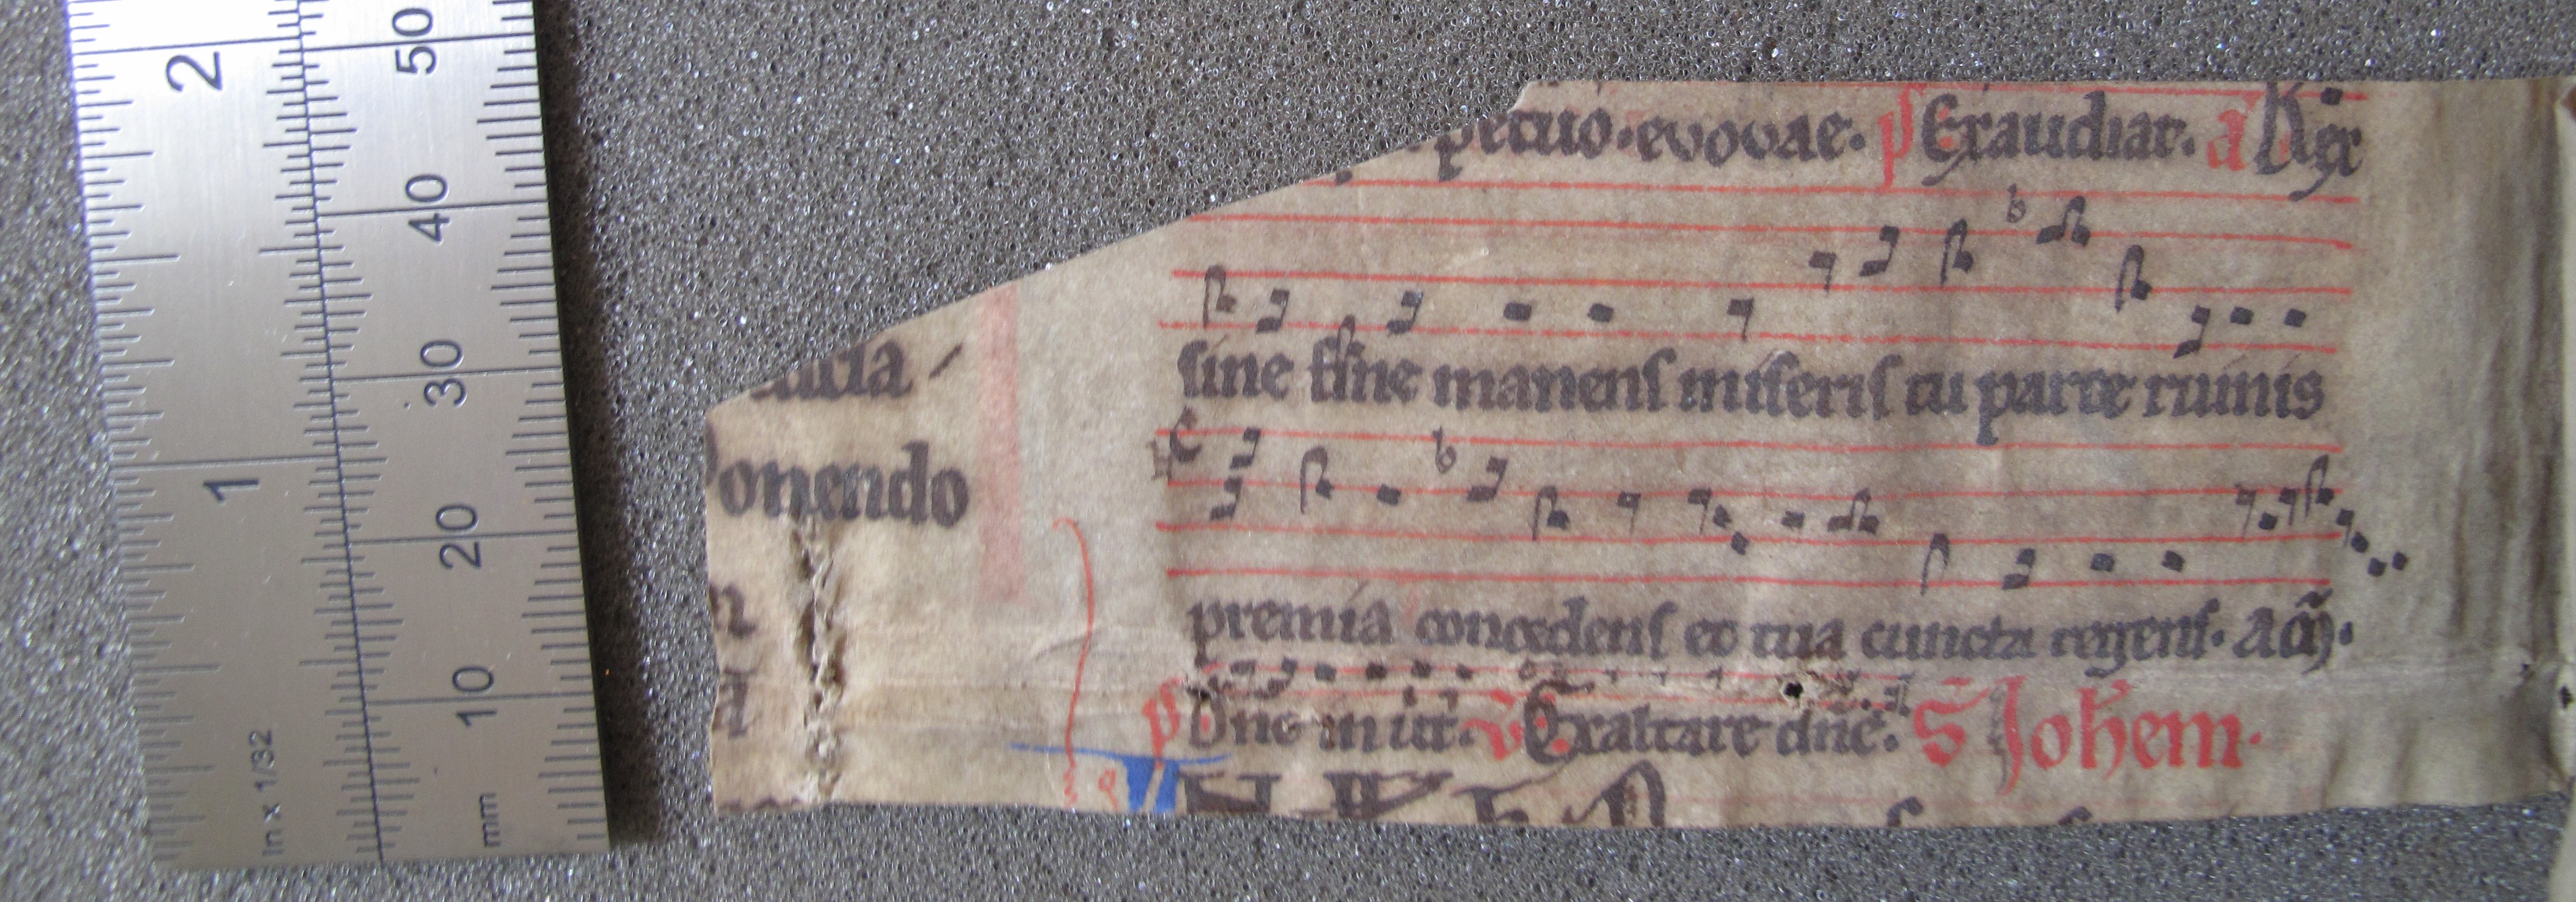 2
50
40
30
1
20
10
In x 1/32
mm
onendo
petuo. evovae. p Exaudiat. a Rex
sine fine manens miseris tu parce ruinis
premia concedens et tua cuncta regens. am̃.
p Dñe in uit. v̄ Exaltare dñe. S Johem.